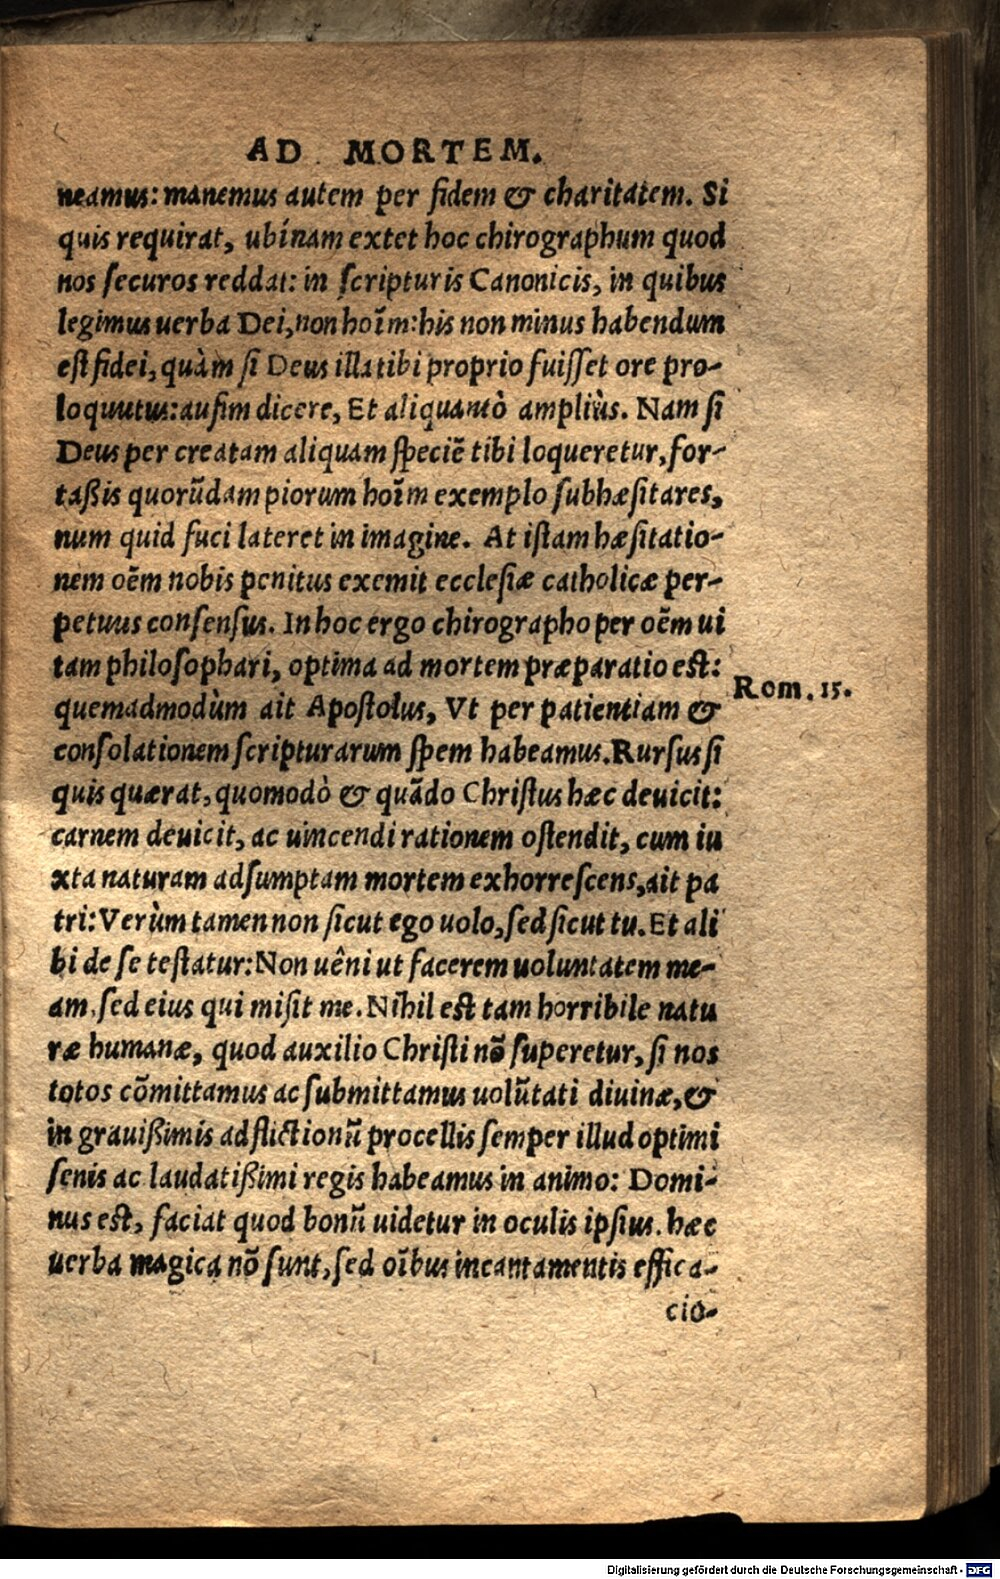 AD MORTEM.
neamus: manemus autem per fidem & charitatem. Si
quis requirat, ubínam extet hoc chirographum quod
nos ſecuros reddat: in ſcripturis Canonicis, in quibus
legimus uerba Dei, non hoĩm: his non minus habendum
eſt fidei, quàm ſi Deus illa tibi proprio fuiſſet ore pro-
loquutus: auſim dicere, Et aliquantò ampliùs. Nam ſi
Deus per creatam aliquam ſpeciẽ tibi loqueretur, for-
taßis quorũdam piorum hoĩm exemplo ſubhæſitares,
num quid fuci lateret in imagine. At iſtam hæſitatio-
nem oẽm nobis penitus exemit eccleſiæ catholicæ per-
petuus conſenſus. In hoc ergo chirographo per oẽm ui
tam philoſophari, optima ad mortem præparatio eſt:
quemadmodùm ait Apoſtolus, Vt per patientiam &
Rom. 15.
conſolationem ſcripturarum ſpem habeamus. Rurſus ſi
quis quærat, quomodò & quãdo Chriſtus hæc deuicit:
carnem deuicit, ac uincendi rationem oſtendit, cum iu
xta naturam adſumptam mortem exhorreſcens, ait pa
tri: Verùm tamen non ſicut ego uolo, ſed ſicut tu. Et ali
bi de ſe teſtatur: Non uêni ut facerem uoluntatem me-
am, ſed eius qui miſit me. Nihil eſt tam horribile natu
ræ humanæ, quod auxilio Chriſti nõ ſuperetur, ſi nos
totos cõmittamus ac ſubmittamus uolũtati diuinæ, &
in grauißimis adflictionũ procellis ſemper illud optimi
ſenis ac laudatißimi regis habeamus in animo: Domi-
nus eſt, faciat quod bonũ uidetur in oculis ipſius. hæc
uerba magica nõ ſunt, ſed oĩbus incantamentis effica-
cio-
Digitalisierung gefördert durch die Deutsche Forschungsgemeinschaft - DFG